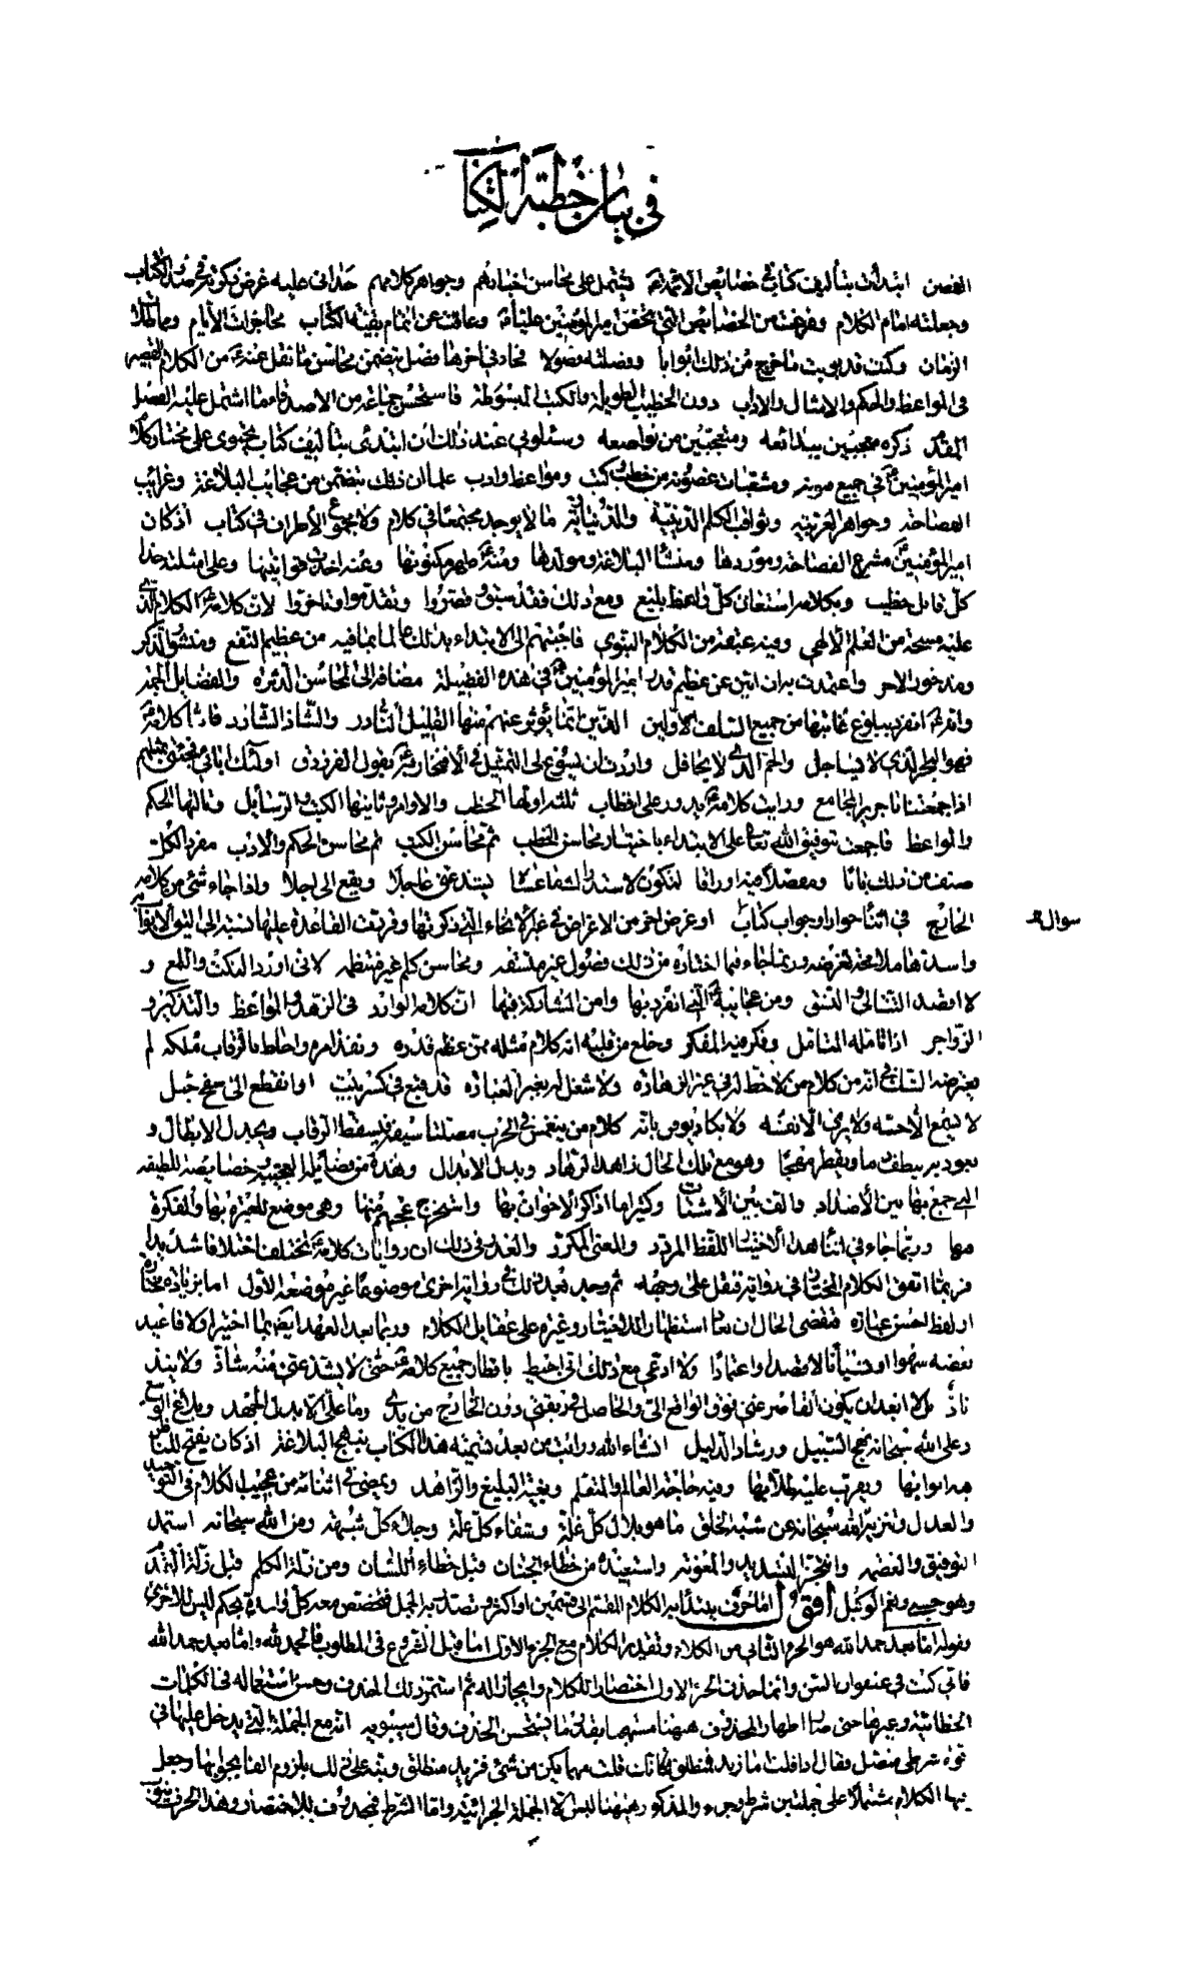 في بيان خطبة الكتاب
الغصن ابتدأت بتأليف كتاب في خصايص الائمة ع يشتمل على محاسن اخبارهم وجواهر كلامهم حداني عليه غرض ذكرته في صدر الكتاب
وجعلته امام الكلام وفرغت من الخصايص التي تخص امير المؤمنين عليا ع وعاقت عن اتمام بقية الكتاب محاجزات الأيام ومماطلات
الزمان وكنت قد بوبت ما خرج من ذلك ابوابا وفصلته فصولا فجاء في اخرها فصل يتضمن محاسن ما نقل عنه ع من الكلام القصير
في المواعظ والحكم والامثال والاداب دون الخطب الطويلة والكتب المبسوطة فاستحسن جماعة من الاصدقاء ما اشتمل عليه الفصل
المقدم ذكره معجبين ببدائعه ومتعجبين من نواصعه وسئلوني عند ذلك ان ابتدئ بتأليف كتاب يحتوي على مختار كلام
امير المؤمنين ع في جميع فنونه ومتشعبات غصونه من خطب وكتب ومواعظ وادب علما ان ذلك يتضمن من عجايب البلاغة وغرايب
الفصاحة وجواهر العربية وثواقب الكلم الدينية والدنياوية ما لا يوجد مجتمعا في كلام ولا مجموع الأطراف في كتاب اذ كان
امير المؤمنين ع مشرع الفصاحة وموردها ومنشأ البلاغة ومولدها ومنه ع ظهر مكنونها وعنه اخذت قوانينها وعلى امثلته حذا
كل قائل خطيب وبكلامه استعان كل واعظ بليغ ومع ذلك فقد سبق وقصروا وتقدم وتاخروا لان كلامه ع الكلام الذي
عليه مسحة من العلم الالهي وفيه عبقة من الكلام النبوي فاجبتهم الى الابتداء بذلك عالما بما فيه من عظيم النفع ومنشور الذكر
ومذخور الاجر واعتمدت به ان ابين عن عظيم قدر امير المؤمنين ع في هذه الفضيلة مضافة الى المحاسن الدثرة والفضايل الجمة
وانه ع انفرد ببلوغ غايتها من جميع السلف الاولين الذين انما يؤثر عنهم منها القليل النادر والشاذ الشارد فاما كلامه ع
فهو البحر الذي لا يساجل والجم الذي لا يحافل واردت ان يسوغ لي التمثيل في الافتخار به ع بقول الفرزدق اولئك ابائي فجئني بمثلهم
اذا جمعتنا يا جرير المجامع ورايت كلامه ع يدور على اقطاب ثلثة اولها الخطب والاوامر وثانيها الكتب والرسايل وثالثها الحكم
والمواعظ فاجمعت بتوفيق الله تعالى على الابتداء باختيار محاسن الخطب ثم محاسن الكتب ثم محاسن الحكم والادب مفردا لكل
صنف من ذلك بابا ومفصلا فيه اوراقا لتكون لاستدراك ما عساه يشذ عني عاجلا ويقع الي اجلا واذا جاء شيء من كلامه
الخارج في اثناء حوار او جواب كتاب او غرض اخر من الاغراض في غير الانحاء التي ذكرتها وقررت القاعدة عليها نسبته الى اليق الابواب
سوال
واشدها ملامحة لغرضه وربما جاء فيما اختاره من ذلك فصول غير متسقة ومحاسن كلم غير منتظمة لانى اورد النكت واللمع و
لا اقصد التتالي والنسق ومن عجايبه ع التي انفرد بها وامن المشاركة فيها ان كلامه الوارد في الزهد والمواعظ والتذكير و
الزواجر اذا تامله المتامل وفكر فيه المفكر وخلع من قلبه انه كلام مثله ممن عظم قدره ونفذ امره واحاط بالرقاب ملكه لم
يعترضه الشك في انه من كلام من لا حظ له في غير الزهادة ولا شغل له بغير العبادة قد قبع في كسر بيت او انقطع الى سفح جبل
لا يسمع الا حسه ولا يرى الا نفسه ولا يكاد يوقن بانه كلام من ينغمس في الحرب مصلتا سيفه فيقط الرقاب ويجدل الابطال و
يعود به ينطف دما ويقطر مهجا وهو مع تلك الحال زاهد الزهاد وبدل الابدال وهذه من فضايله العجيبة وخصايصه اللطيفة
التي جمع بها بين الاضداد والف بين الأشتات وكثيرا ما اذاكر الاخوان بها واستخرج عجبهم منها وهي موضع للعبرة بها والفكرة
فيها وربما جاء في اثناء هذا الاختيار اللفظ المردد والمعنى المكرر والعذر في ذلك ان روايات كلامه ع تختلف اختلافا شديدا
فربما اتفق الكلام المختار في رواية فنقل على وجهه ثم وجد بعد ذلك في رواية اخرى موضوعا غير موضعه الاول اما بزيادة مختارة
او لفظ احسن عبارة فتقضي الحال ان يعاد استظهارا للاختيار وغيرة على عقايل الكلام وربما بعد العهد ايضا بما اختير اولا فاعيد
بعضه سهوا او نسيانا لا قصدا واعتمادا ولا ادعي مع ذلك اني احيط باقطار جميع كلامه ع حتى لا يشذ عني منه شاذ ولا يند
ناد بل لا ابعد ان يكون القاصر عني فوق الواقع الي والحاصل في ربقتي دون الخارج من يدي وما علي الا بذل الجهد وبلاغ الوسع
وعلى الله سبحانه نهج السبيل ورشاد الدليل انشاء الله ورايت من بعد تسمية هذا الكتاب بنهج البلاغة اذ كان يفتح للناظر
فيه ابوابها ويقرب عليه طلابها وفيه حاجة العالم والمتعلم وبغية البليغ والزاهد ويمضي في اثنائه من عجيب الكلام في التوحيد
والعدل وتنزيه الله سبحانه عن شبه الخلق ما هو بلال كل غلة وشفاء كل علة وجلاء كل شبهة ومن الله سبحانه استمد
التوفيق والعصمة واتنجز التسديد والمعونة واستعيذه من خطاء الجنان قبل خطاء اللسان ومن زلة الكلم قبل زلة القدم
وهو حسبي ونعم الوكيل اقول اما حرف يبتدأ به الكلام المنقسم الى قسمين او اكثر وتصدر به الجمل فتختص معه كل واحدة بحكم ليس للاخرى
وقوله اما بعد حمد الله هو الجزء الثاني من الكلام وتقدير الكلام مع الجزء الاول اما قبل الشروع في المطلوب فالحمد لله واما بعد حمد الله
فاني كنت في عنفوان السن وانما حذف الجزء الاول اختصارا للكلام وايجازا له ثم استمر ذلك الحذف وحسن استعماله في الكلمات
الخطابية وغيرها حتى صار اظهار المحذوف ههنا مستهجنا بعد ان ما يستحسن الحذف وقال سيبويه انه مع الجملة التي يدخل عليها في
قوة شرطي متصل وقال اذا قلت اما زيد فمنطلق فكانك قلت مهما يكن من شيء فزيد منطلق ونبه على ذلك بلزوم الفا بجوابها وجعل
فيها الكلام مشتملا على جملتين شرط وجزاء والمذكور ههنا ليس الا الجملة الجزائية واما الشرط فمحذوف للاختصار وهذا الحرف ينوب